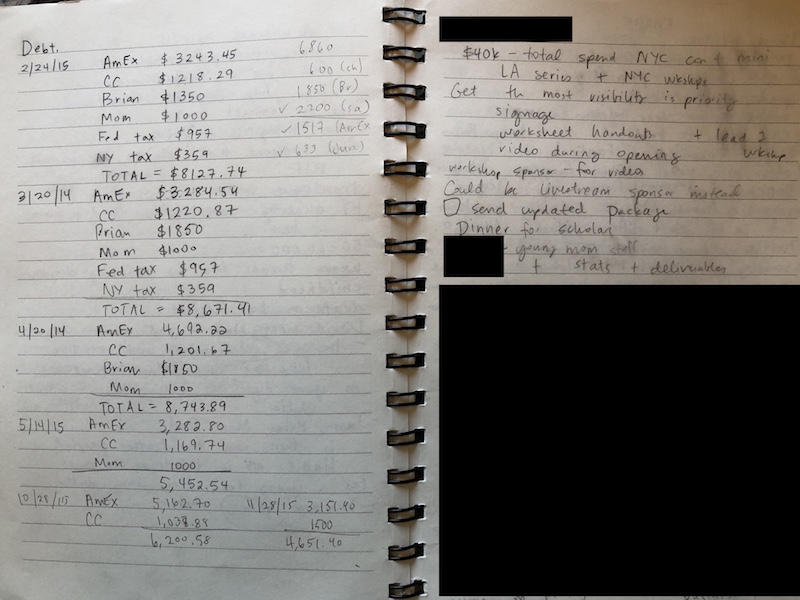 Debt.
2/24/15 AmEx $3243.45
CC $1218.29
Brian $1350
Mom $1000
Fed tax $957
NY tax $359
TOTAL = $8127.74
6860
600 (ch)
1,850 (Br)
✓ 2200 (sa)
✓ 1517 (AmEx
✓ 633
3/20/14 AmEx $3284.54
CC $1220.87
Brian $1850
Mom $1000
Fed tax $957
NY tax $359
TOTAL = $8,671.41
4/20/14 AmEx 4,692.22
CC 1,201.67
Brian $1850
Mom 1000
TOTAL = 8,743.89
5/14/15 AmEx 3,282.80
CC 1,169.74
Mom 1000
5,452.54
10/28/15 AmEx 5,162.70
CC 1,038.88
6,200.58
11/28/15 3,151.40
1500
4,651.40
$40k - total spend NYC conf mini
LA series + NYC wkshps
Get th most visibility is priority
signage
worksheet handouts + lead 2
video during opening wkshp
workshop sponsor - for video
Could be livestream sponsor instead
send updated package
Dinner for scholar
- young mom stuff
+ stats + deliverables